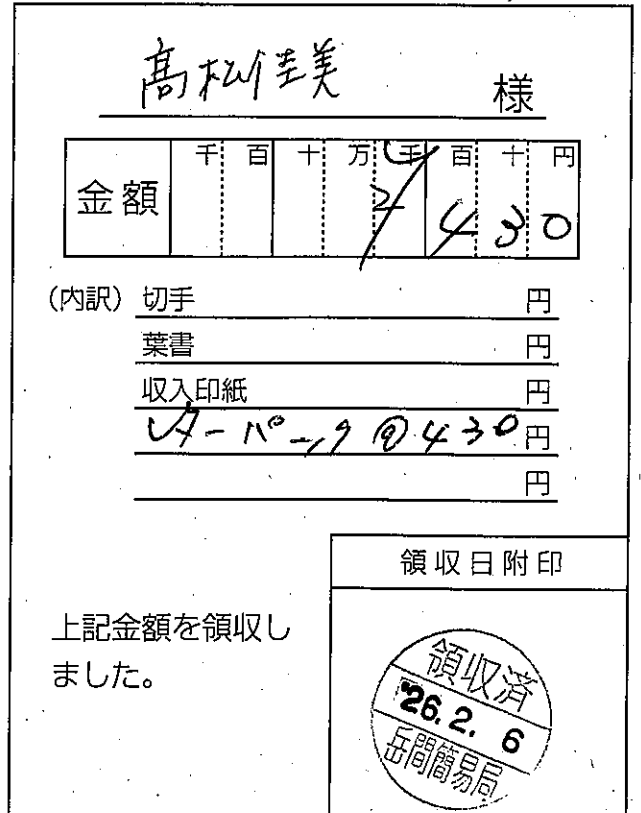 髙松佳美 様
金額 千 百 十 万 千 百 十 円
430
(内訳) 切手 円
葉書 円
収入印紙 円
レターパック @430円
円
領収日附印
上記金額を領収し
ました。
領収済
'26.2.6
岳間簡易局